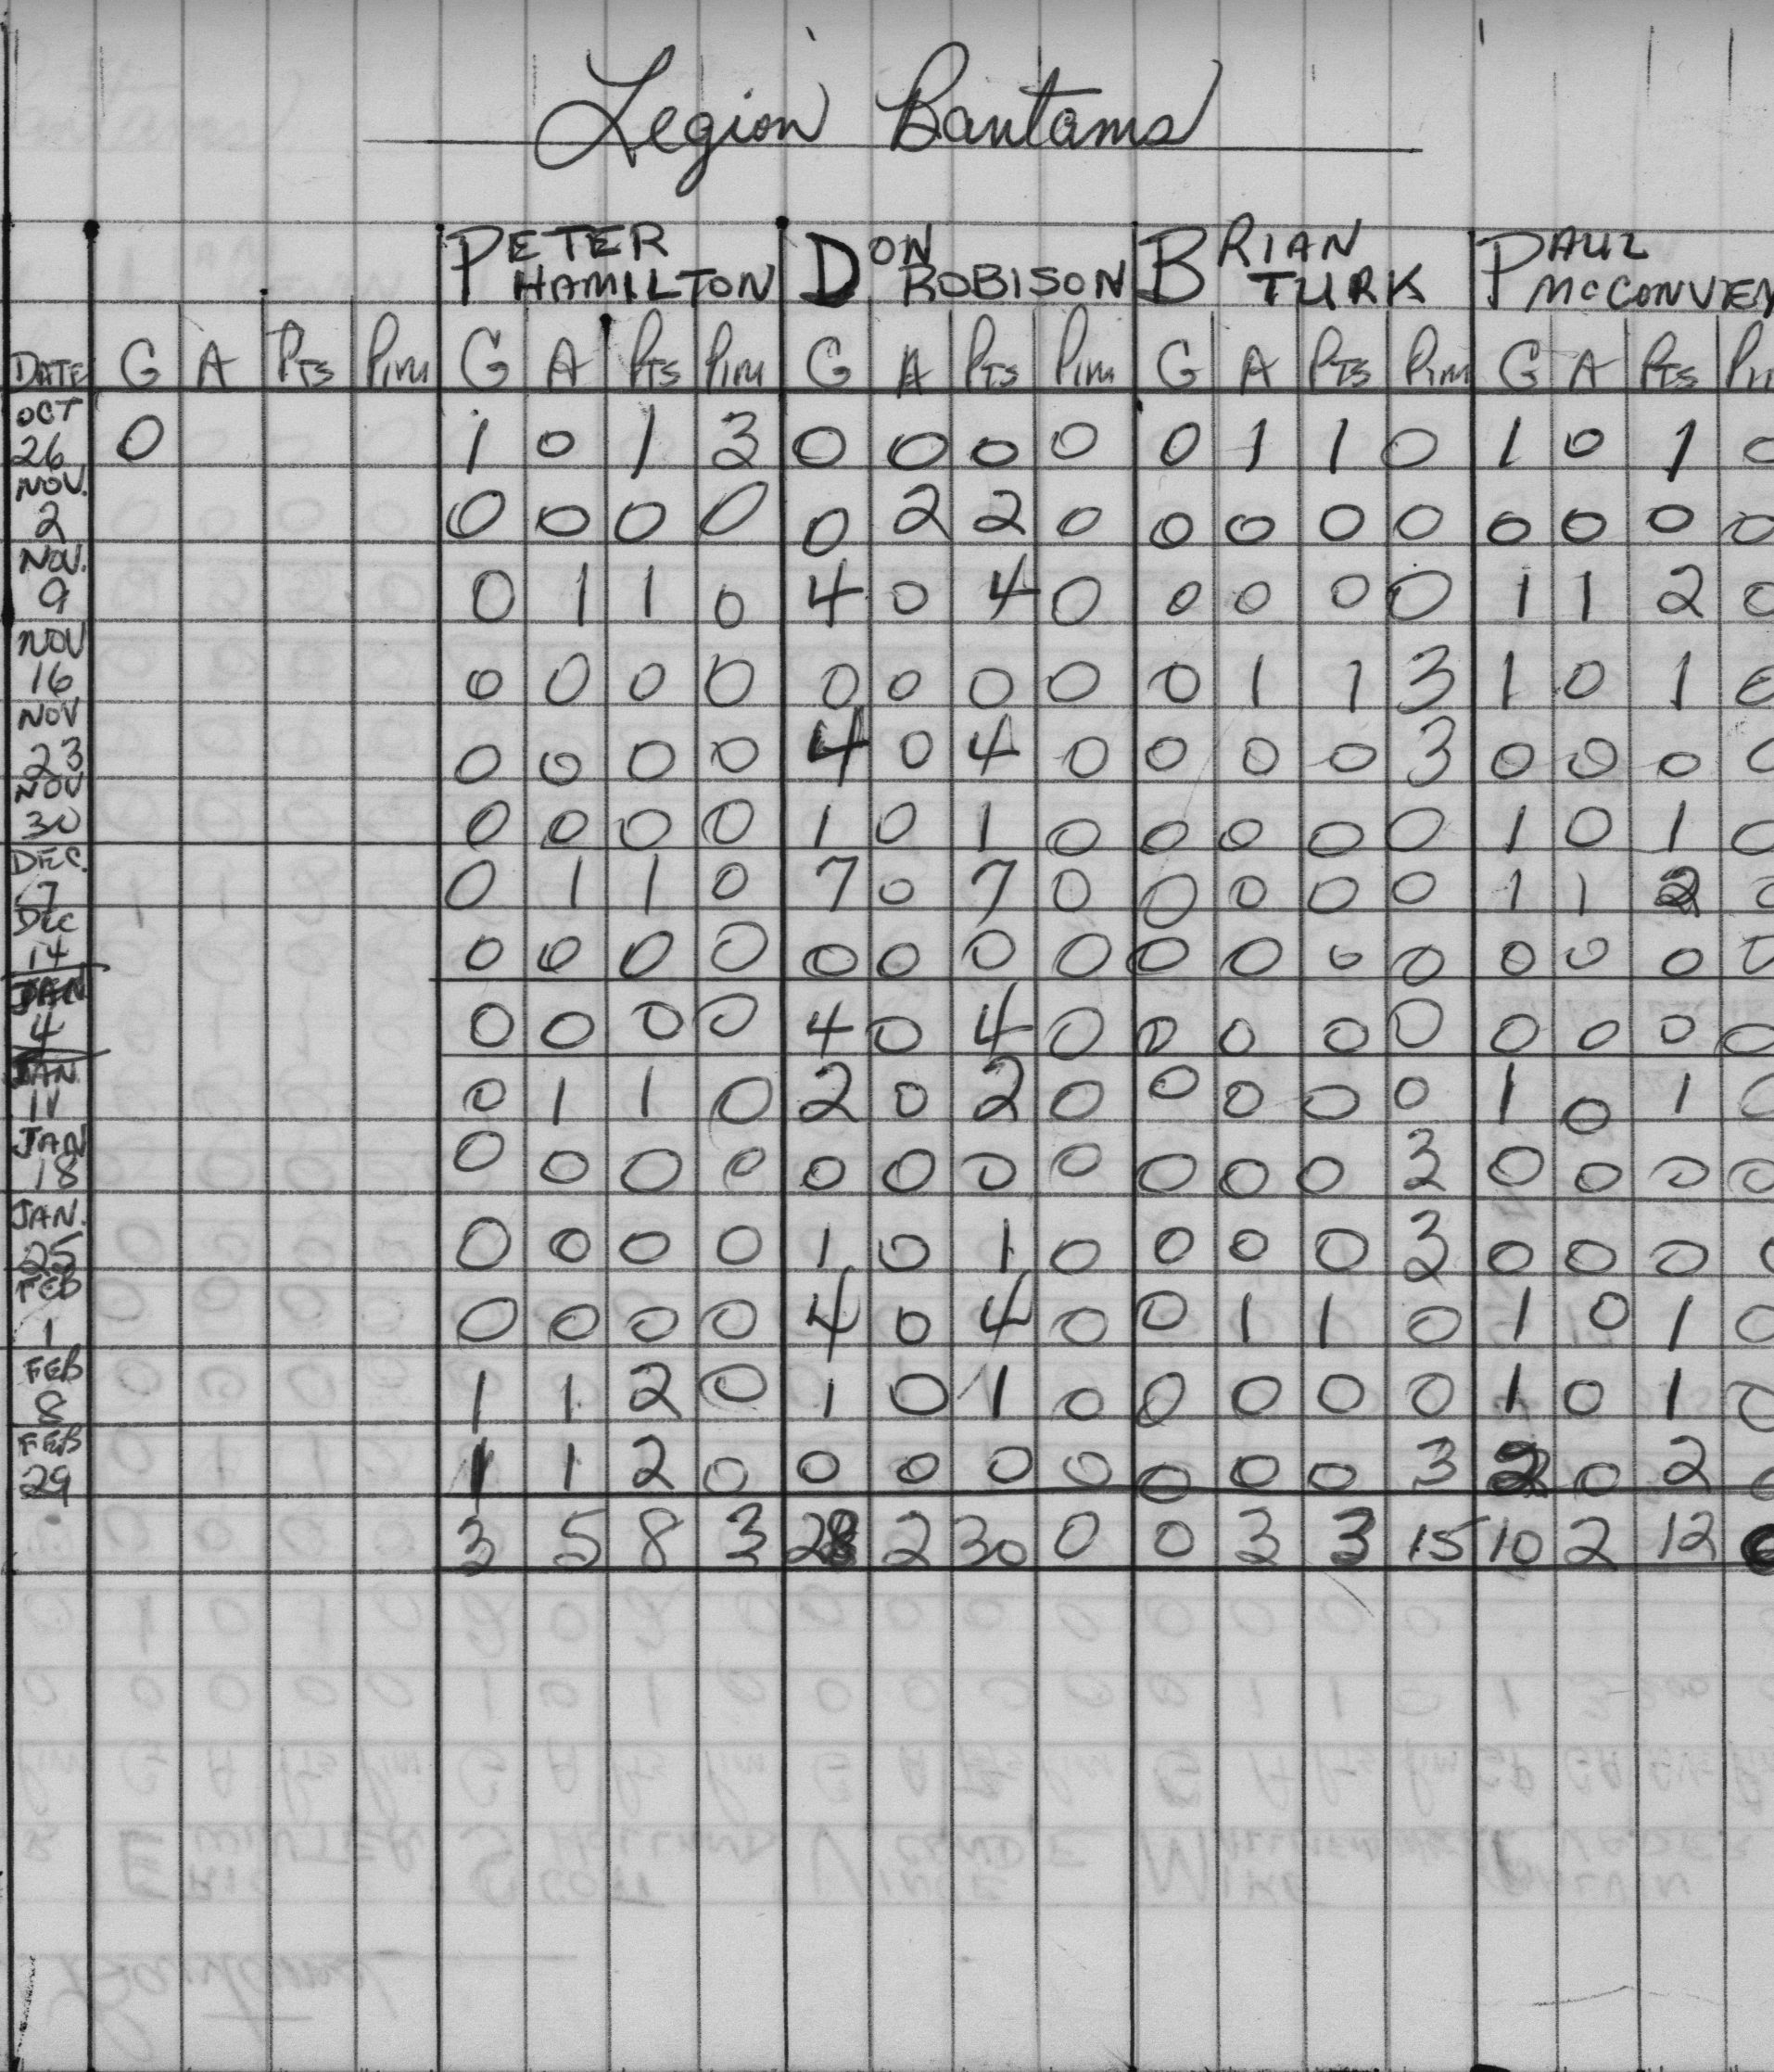 Legion Bantams
PETER HAMILTON DON ROBISON BRIAN TURK PAUL McCONVEY
DATE G A PTS PIM G A PTS PIM G A PTS PIM G A PTS PIM G A PTS
OCT 26 0 1 0 1 3 0 0 0 0 0 1 1 0 1 0 1 0
NOV. 2 0 0 0 0 0 2 2 0 0 0 0 0 0 0 0 0
NOV. 9 0 1 1 0 4 0 4 0 0 0 0 0 1 1 2 0
NOV 16 0 0 0 0 0 0 0 0 0 1 1 3 1 0 1 0
NOV 23 0 0 0 0 4 0 4 0 0 0 0 3 0 0 0 0
NOV 30 0 0 0 0 1 0 1 0 0 0 0 0 1 0 1 0
DEC. 7 0 1 1 0 7 0 7 0 0 0 0 0 1 1 2 0
DEC 14 0 0 0 0 0 0 0 0 0 0 0 0 0 0 0 0
JAN 4 0 0 0 0 4 0 4 0 0 0 0 0 0 0 0 0
JAN. 11 0 1 1 0 2 0 2 0 0 0 0 0 1 0 1 0
JAN 18 0 0 0 0 0 0 0 0 0 0 0 3 0 0 0 0
JAN. 25 0 0 0 0 1 0 1 0 0 0 0 3 0 0 0 0
FEB 1 0 0 0 0 4 0 4 0 0 1 1 0 1 0 1 0
FEB 8 1 1 2 0 1 0 1 0 0 0 0 0 1 0 1 0
FEB 29 1 1 2 0 0 0 0 0 0 0 0 3 2 0 2 0
3 5 8 3 28 2 30 0 0 3 3 15 10 2 12 0